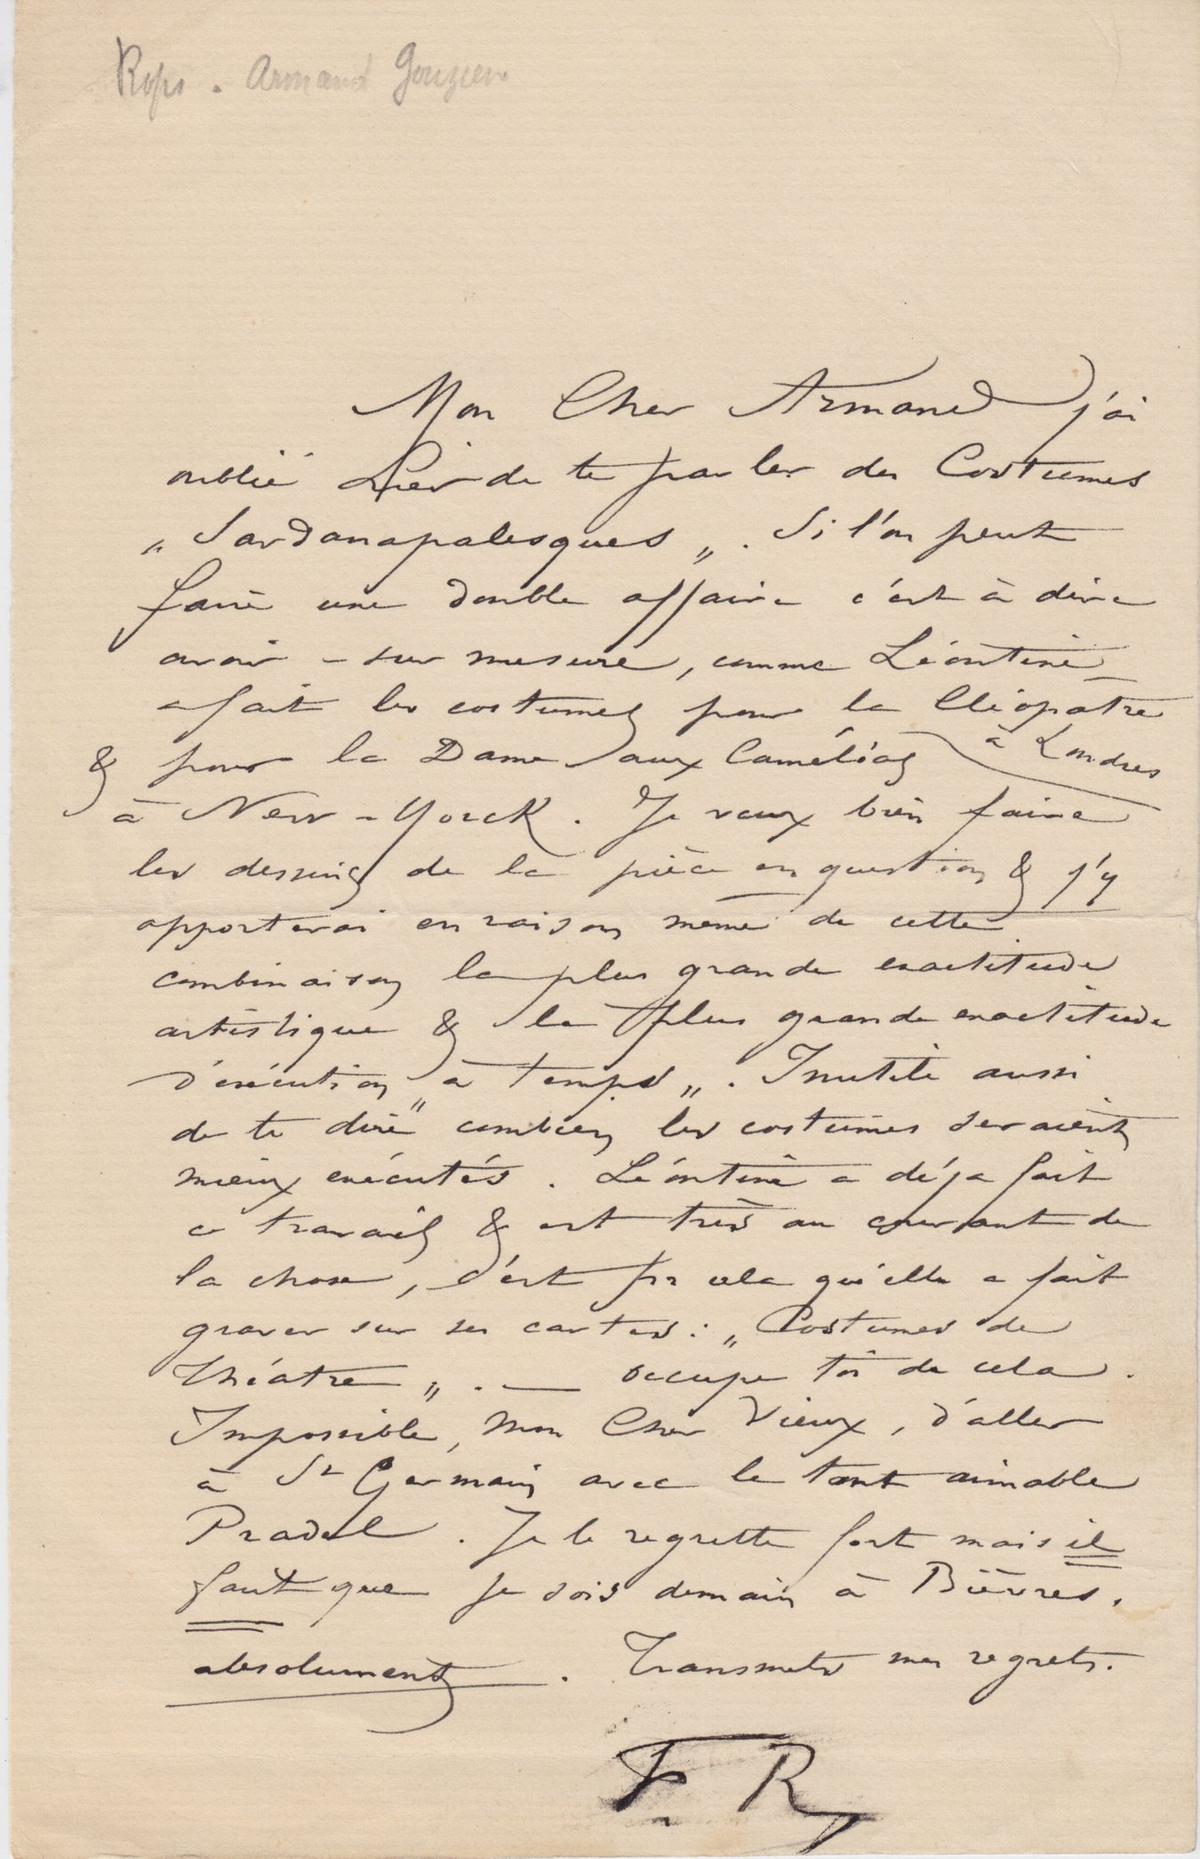 Rops. Armand Gouzien
Mon Cher Armand j'ai
oublié hier de te parler des Costumes
„ Sardanapalesques „. Si l'on peut
faire une double affaire c'est à dire
avoir – sur mesure, comme Léontine
a fait les costumes pour la Cléopatre
à Londres
& pour la Dame aux Camélias
à New-Yorck. Je veux bien faire
les dessins de la pièce en question & j'y
apporterai en raison même de cette
combinaison la plus grande exactitude
artistique & la plus grande exactitude
d'exécution „ à temps „. Inutile aussi
de te dire combien les costumes seraient
mieux exécutés. Léontine a déja fait
ce travail & est très au courant de
la chose, c'est pr cela qu'elle a fait
graver sur ses cartes: „ Costumes de
Théatre „. — occupe toi de cela.
Impossible, mon Cher Vieux, d'aller
à St Germain avec le tout aimable
Pradel. Je le regrette fort mais il
faut que je sois demain à Bièvres.
absolument. Transmets mes regrets.
F. R